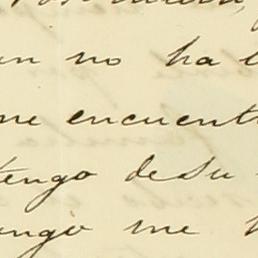 un no ha
me encuent
tengo de su
engo me